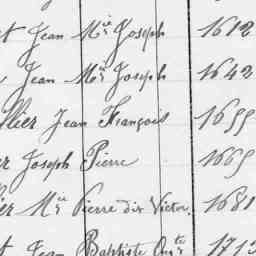 t Jean Mie Joseph 1612
Jean Mie Joseph 1642
llier Jean François 1655
er Joseph Pierre 1665
ier Mie Pierre dit Victor. 1681
t Jean Baptiste 1713